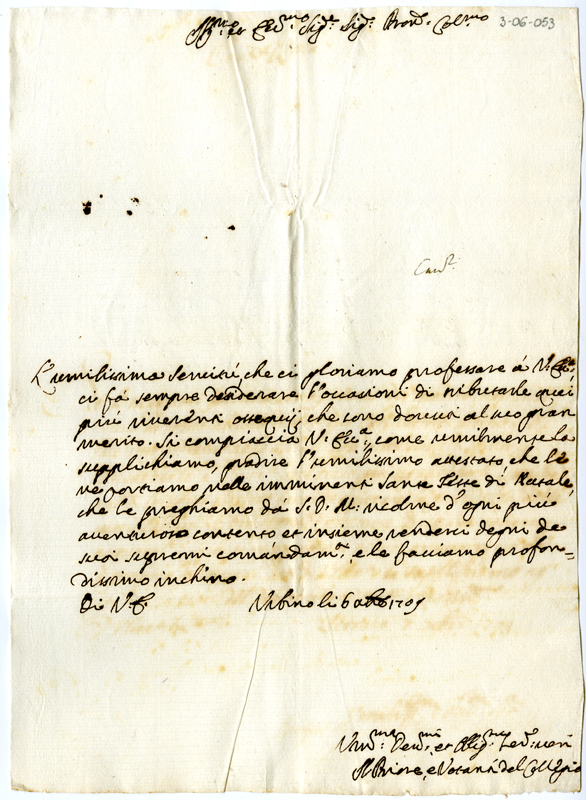 Ill.mo et Ecc.mo Sig.re Sig.r Pron. Col.mo
3-06-053
L'umilissima servitù, che ci gloriamo professare à V. Ecc.a
ci fà sempre desiderare l'occasioni di tributarle quei
più riverenti ossequij, che sono dovuti al suo gran
merito. Si compiaccia V. Ecc.a, come umilmente la
supplichiamo, gradire l'umilissimo attestato, che le
ne portiamo nelle imminenti Sante Feste di Natale,
che le preghiamo dà S. D. M. ricolme d'ogni più
aventuroso contento et insieme renderci degni de
suoi supremi comandam.ti, e le facciamo profon=
dissimo inchino.
Di V. E. Urbino li 6 1709
Um.mi Dev.mi et Oblig.mi
Il Priore, e Notari del Collegio